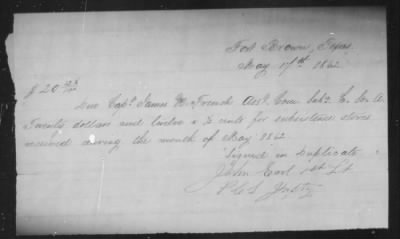 Fort Brown, Texas
May 17th 1862
$ 20 12/100
Due Capt. James H. French Asst. Com Sub. C. S. A
Twenty dollars and twelve & ½ cents for subsistence stores
received during the month of May 1862
Signed in Duplicate
John Earl 1st Lt